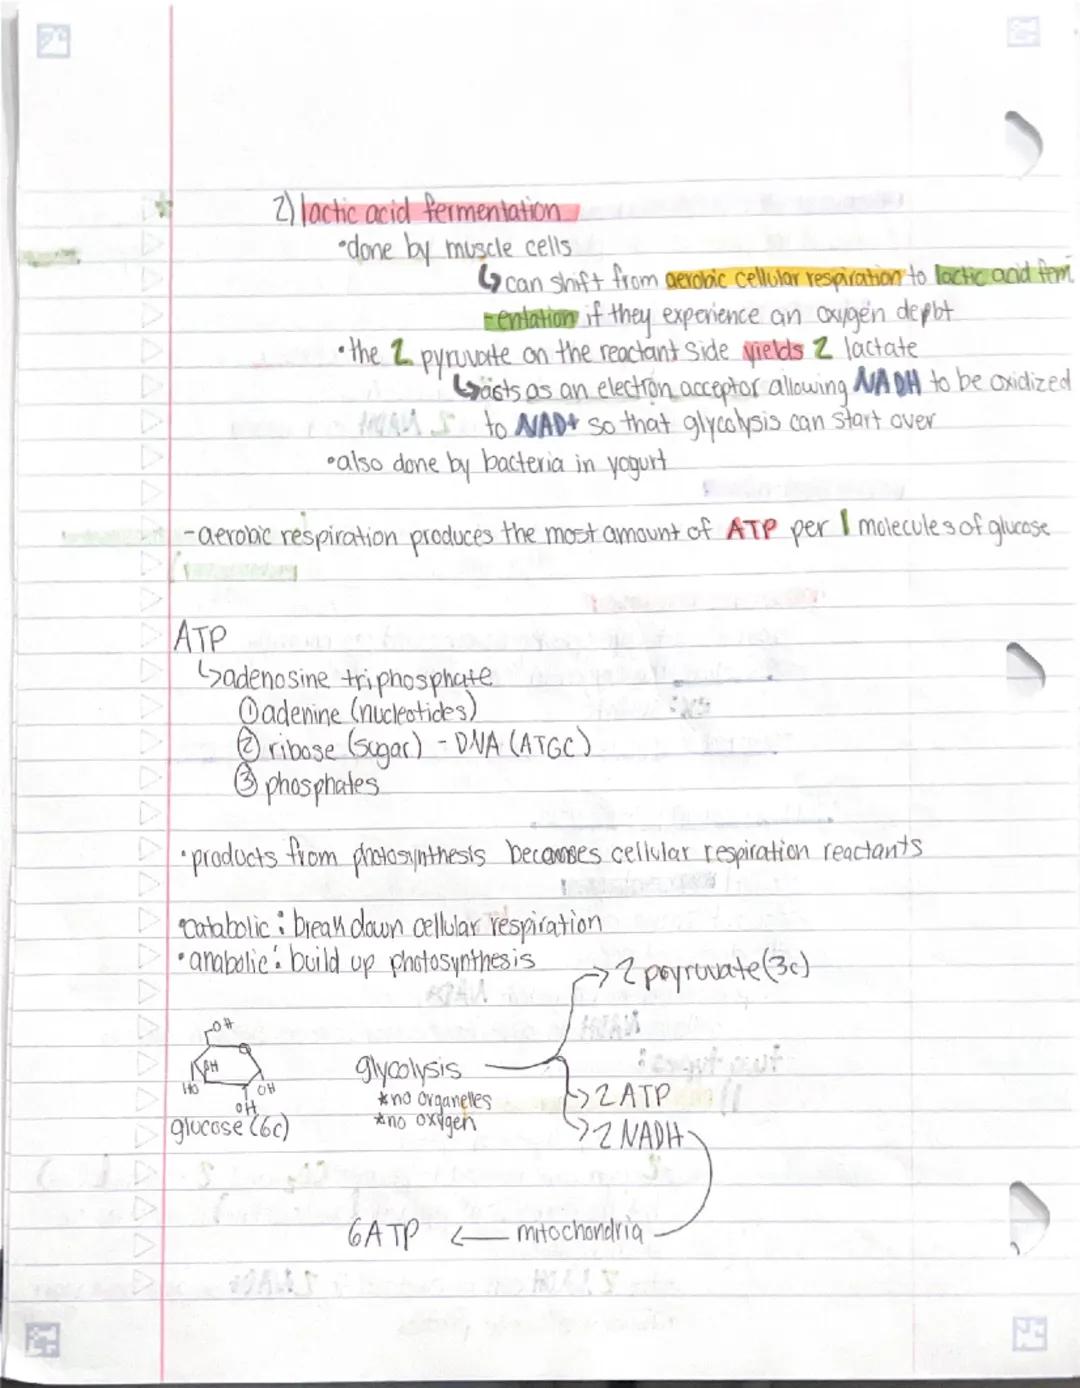 2) lactic acid fermentation
•done by muscle cells
↳ can shift from aerobic cellular respiration to lactic acid ferm
-entation if they experience an oxygen depbt
•the 2 pyruvate on the reactant side yields 2 lactate
↳ acts as an electron acceptor allowing NADH to be oxidized
to NAD+ so that glycolysis can start over
•also done by bacteria in yogurt
-aerobic respiration produces the most amount of ATP per 1 molecules of glucose
ATP
↳adenosine triphosphate
① adenine (nucleotides)
② ribose (sugar) - DNA (ATGC)
③ phosphates
•products from photosynthesis becomes cellular respiration reactants
•catabolic: break down cellular respiration
•anabolic: build up photosynthesis
→ 2 pyruvate (3c)
OH
OH
HO
OH
OH
glucose (6c)
glycolysis
*no organelles
*no oxygen
→2 ATP
→2 NADH
6 ATP ← mitochondria